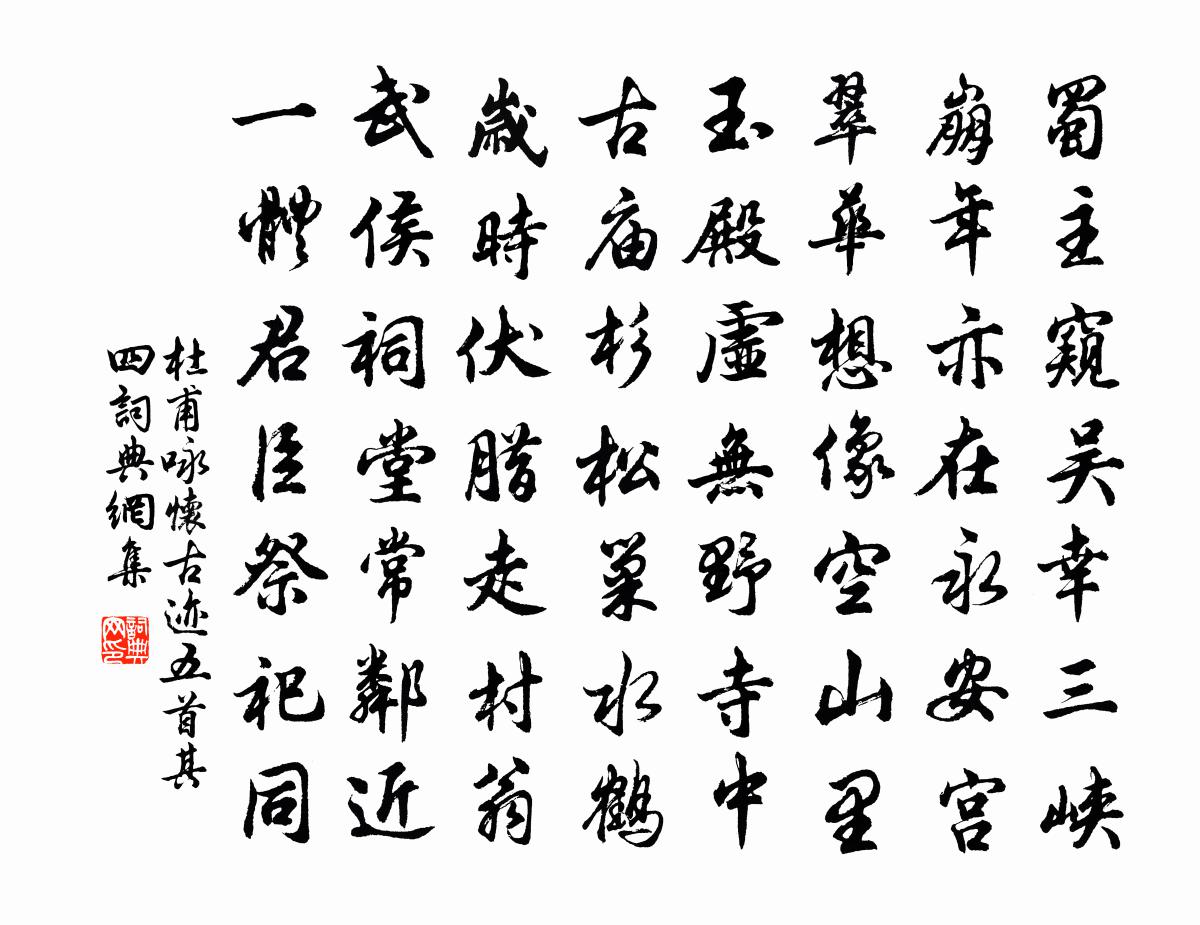 蜀主窺吴幸三峡
崩年亦在永安宫
翠華想像空山里
玉殿虛無野寺中
古庙杉松巢水鶴
歲時伏腊走村翁
武侯祠堂常鄰近
一體君臣祭祀同
杜甫咏懷古迹五首其
四詞典網集
詞典
网印